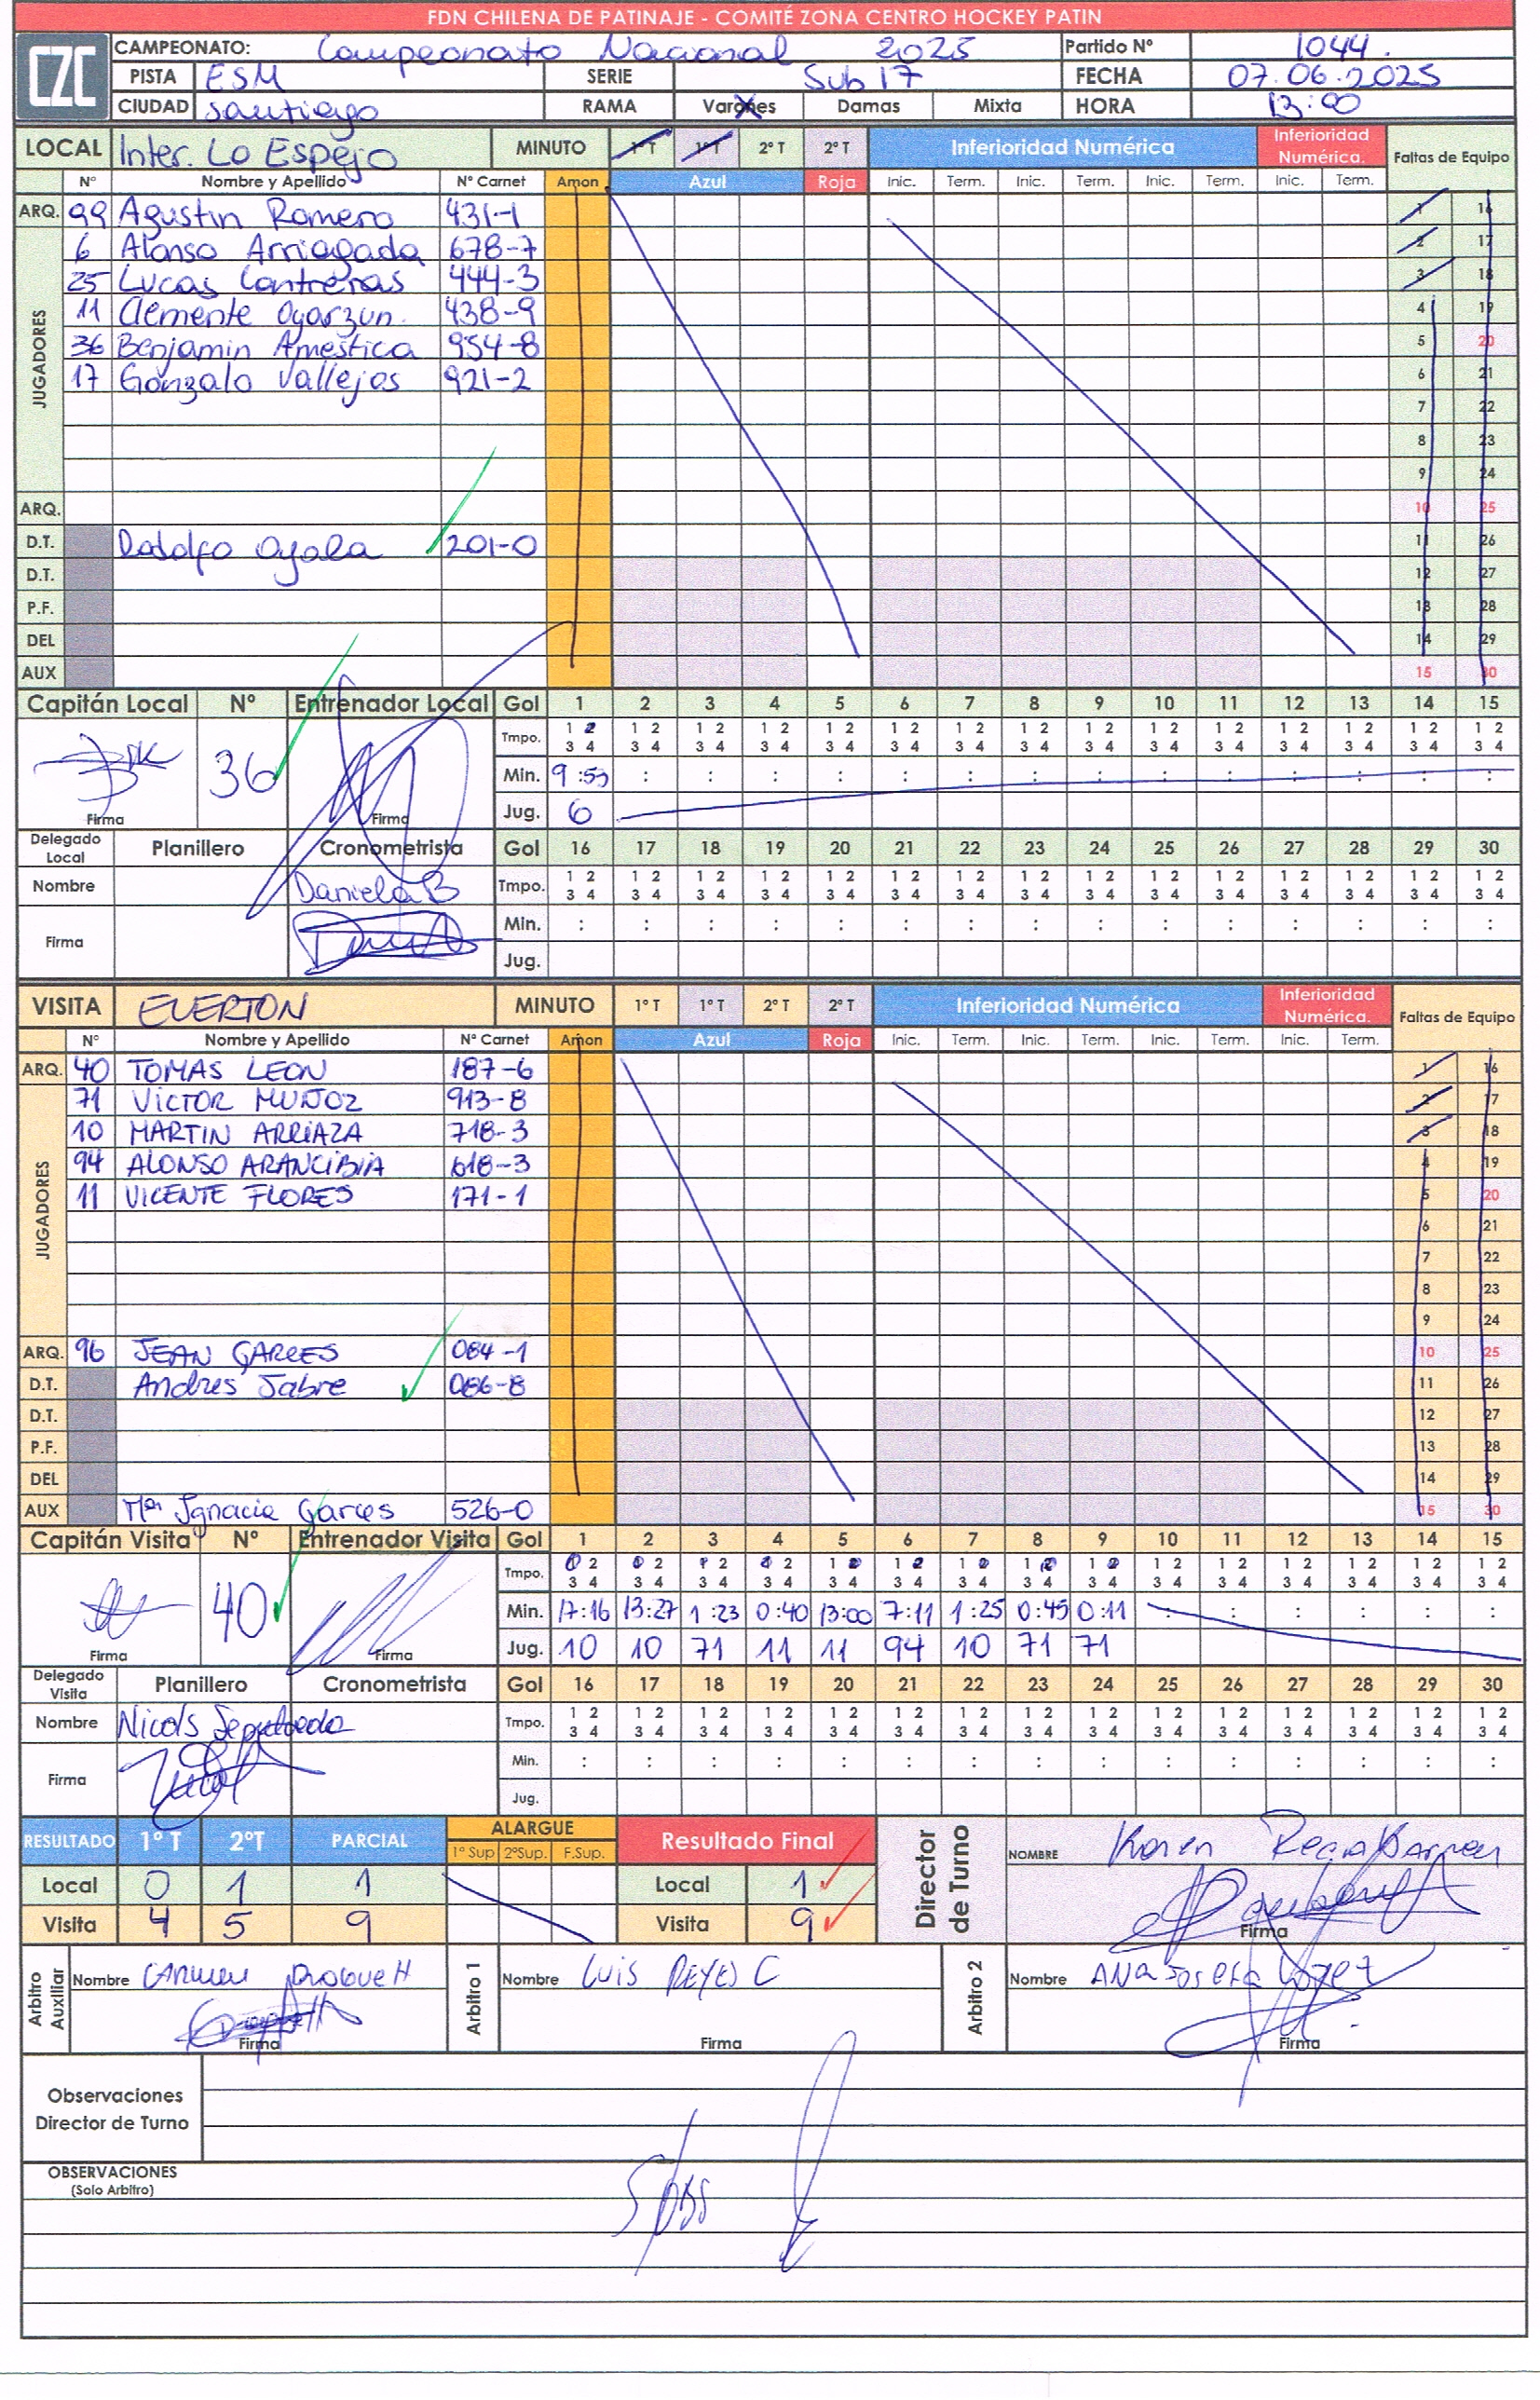 FDN CHILENA DE PATINAJE - COMITÉ ZONA CENTRO HOCKEY PATIN
CZC
CAMPEONATO: Campeonato Nacional 2025 Partido Nº 1044.
PISTA ESM SERIE Sub 17 FECHA 07.06.2025
CIUDAD Santiago RAMA Varones Damas Mixta HORA 13:00
LOCAL Inter. Lo Espejo MINUTO 1º T 1º T 2º T 2º T Inferioridad Numérica Inferioridad Numérica. Faltas de Equipo
Nº Nombre y Apellido Nº Carnet Amon Azul Roja Inic. Term. Inic. Term. Inic. Term. Inic. Term.
ARQ. 99 Agustin Romero 431-1 1 16
JUGADORES
6 Alonso Arriagada 678-7 2 17
25 Lucas Contreras 444-3 3 18
11 Clemente Oyarzun. 438-9 4 19
36 Benjamin Amestica 954-8 5 20
17 Gonzalo Vallejos 921-2 6 21
7 22
8 23
9 24
ARQ. 10 25
D.T. Rodolfo Ayala 201-0 11 26
D.T. 12 27
P.F. 13 28
DEL 14 29
AUX 15 30
Capitán Local Nº Entrenador Local Gol 1 2 3 4 5 6 7 8 9 10 11 12 13 14 15
Tmpo. 1 2 1 2 1 2 1 2 1 2 1 2 1 2 1 2 1 2 1 2 1 2 1 2 1 2 1 2 1 2
3 4 3 4 3 4 3 4 3 4 3 4 3 4 3 4 3 4 3 4 3 4 3 4 3 4 3 4 3 4
36 Min. 9:53 : : : : : : : : : : : : : :
Firma Firma Jug. 6
Delegado Local Planillero Cronometrista Gol 16 17 18 19 20 21 22 23 24 25 26 27 28 29 30
Nombre Daniela B Tmpo. 1 2 1 2 1 2 1 2 1 2 1 2 1 2 1 2 1 2 1 2 1 2 1 2 1 2 1 2 1 2
3 4 3 4 3 4 3 4 3 4 3 4 3 4 3 4 3 4 3 4 3 4 3 4 3 4 3 4 3 4
Firma Min. : : : : : : : : : : : : : : :
Jug.
VISITA EVERTON MINUTO 1º T 1º T 2º T 2º T Inferioridad Numérica Inferioridad Numérica. Faltas de Equipo
Nº Nombre y Apellido Nº Carnet Amon Azul Roja Inic. Term. Inic. Term. Inic. Term. Inic. Term.
ARQ. 40 TOMAS LEON 187-6 1 16
JUGADORES
71 VICTOR MUÑOZ 913-8 2 17
10 MARTIN ARRIAZA 718-3 3 18
94 ALONSO ARANCIBIA 618-3 4 19
11 VICENTE FLORES 171-1 5 20
6 21
7 22
8 23
9 24
ARQ. 96 JEAN GARCES 084-1 10 25
D.T. Andres Jabre 086-8 11 26
D.T. 12 27
P.F. 13 28
DEL 14 29
AUX Mª Ignacia Garces 526-0 15 30
Capitán Visita Nº Entrenador Visita Gol 1 2 3 4 5 6 7 8 9 10 11 12 13 14 15
Tmpo. 1 2 1 2 1 2 1 2 1 2 1 2 1 2 1 2 1 2 1 2 1 2 1 2 1 2 1 2 1 2
3 4 3 4 3 4 3 4 3 4 3 4 3 4 3 4 3 4 3 4 3 4 3 4 3 4 3 4 3 4
40 Min. 17:16 13:27 1:23 0:40 13:00 7:11 1:25 0:45 0:11 : : : : : :
Firma Firma Jug. 10 10 71 11 11 94 10 71 71
Delegado Visita Planillero Cronometrista Gol 16 17 18 19 20 21 22 23 24 25 26 27 28 29 30
Nombre Nicols Sepulveda Tmpo. 1 2 1 2 1 2 1 2 1 2 1 2 1 2 1 2 1 2 1 2 1 2 1 2 1 2 1 2 1 2
3 4 3 4 3 4 3 4 3 4 3 4 3 4 3 4 3 4 3 4 3 4 3 4 3 4 3 4 3 4
Firma Min. : : : : : : : : : : : : : : :
Jug.
RESULTADO 1º T 2ºT PARCIAL ALARGUE 1º Sup 2ºSup. F.Sup. Resultado Final Director de Turno NOMBRE Karen
Local 0 1 1 Local 1
Visita 4 5 9 Visita 9 Firma
Arbitro Auxiliar Nombre Carmen Arbitro 1 Nombre Luis REYES C Arbitro 2 Nombre ANA Josefa
Firma Firma Firma
Observaciones
Director de Turno
OBSERVACIONES
(Solo Arbitro)
S/OBS